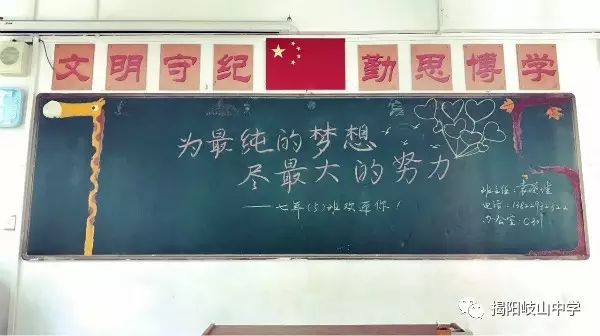 文明守纪 勤思博学
为最纯的梦想
尽最大的努力
——七年(5)班欢迎你!
班主任:
电话:
办公室:C301
揭阳岐山中学